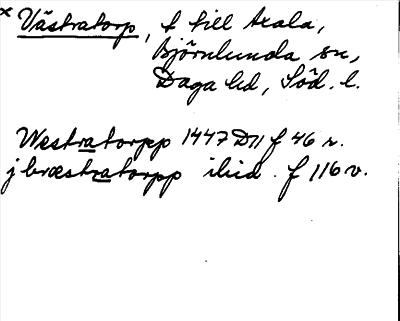 x Västratorp, f till Axala,
Björnlunda sn,
Daga hd, Söd. l.
Westratorpp 1447 D11 f 46 r.
j bræstratorpp ibid. f 116 v.